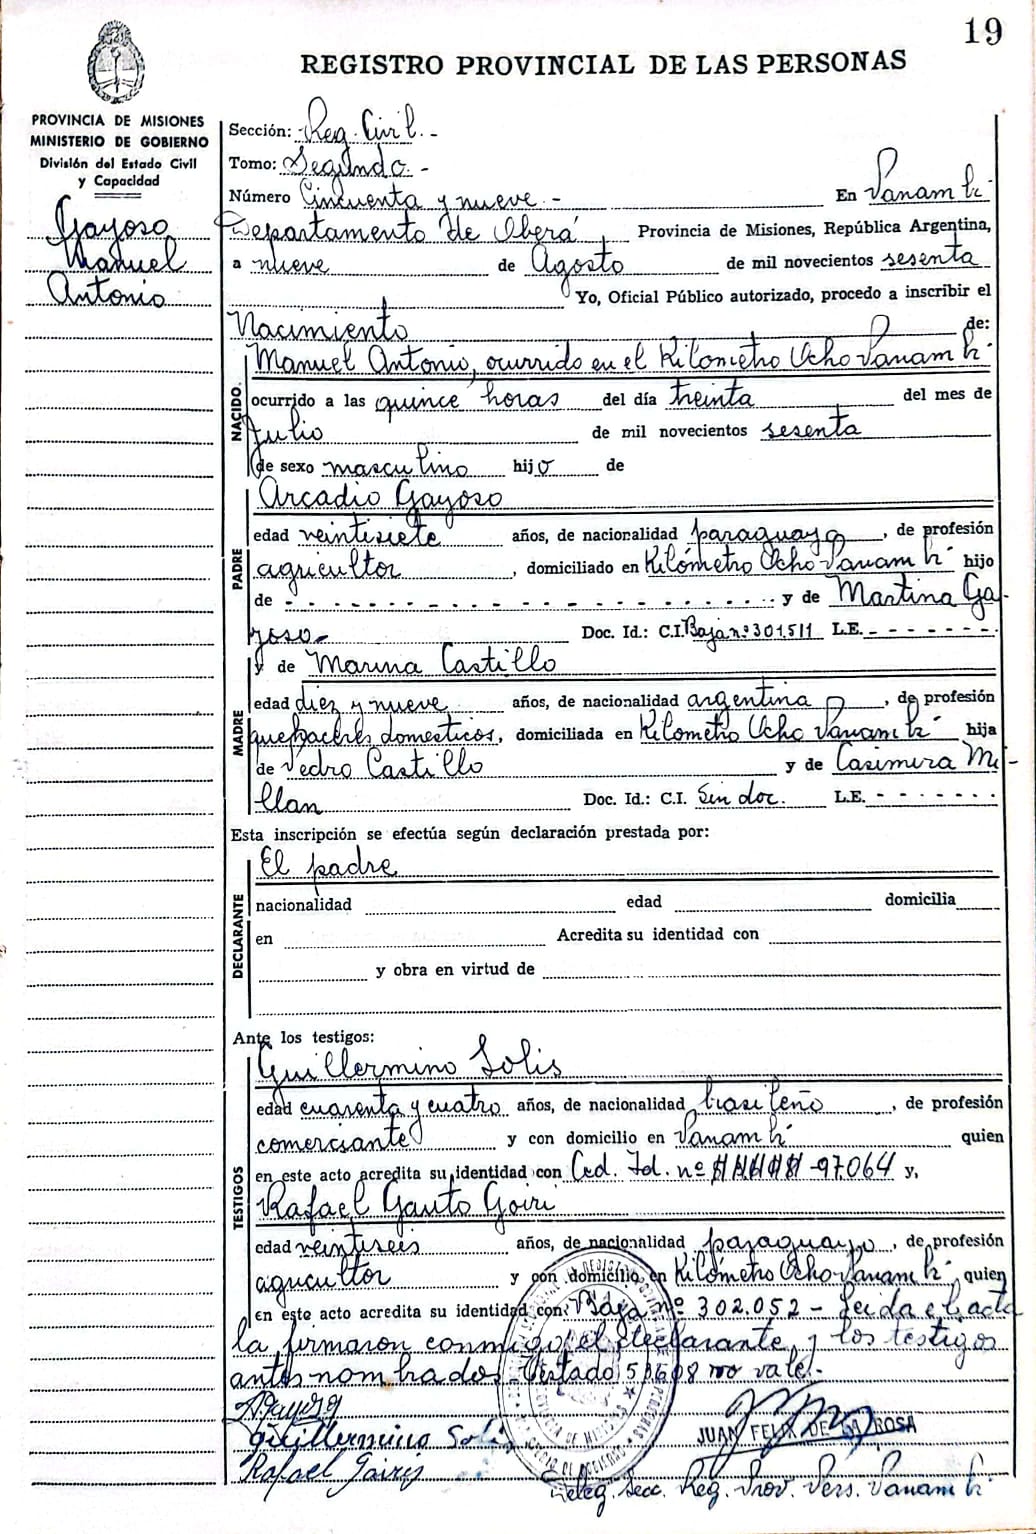 19
REGISTRO PROVINCIAL DE LAS PERSONAS
PROVINCIA DE MISIONES
MINISTERIO DE GOBIERNO
División del Estado Civil
y Capacidad
Gayoso
Manuel
Antonio
Sección: Reg. Civil.-
Tomo: Segundo.-
Número Cincuenta y nueve - En Panambí
Departamento de Oberá, Provincia de Misiones, República Argentina,
a nueve de Agosto de mil novecientos sesenta
Yo, Oficial Público autorizado, procedo a inscribir el
Nacimiento de:
NACIDO.
Manuel Antonio, ocurrido en el Kilómetro Ocho Panambí
ocurrido a las quince horas del día treinta del mes de
Julio de mil novecientos sesenta
de sexo masculino hijo de
PADRE
Arcadio Gayoso
edad veintisiete años, de nacionalidad paraguaya, de profesión
agricultor, domiciliado en Kilómetro Ocho Panambí hijo
de - - - - - - - - - - - - - - - - - y de Martina Ga-
yoso- Doc. Id.: C.I. Baja nº 301,511 L.E. - - - - - - -
MADRE
y de Marina Castillo
edad diez y nueve años, de nacionalidad argentina, de profesión
quehaceres domesticos, domiciliada en Kilómetro Ocho Panambí hija
de Pedro Castillo y de Casimira Mi-
llan Doc. Id.: C.I. Sin doc. L.E. - - - - - - -
Esta inscripción se efectúa según declaración prestada por:
DECLARANTE
El padre
nacionalidad edad domicilia
en Acredita su identidad con
y obra en virtud de
Ante los testigos:
TESTIGOS
Guillermino Solis
edad cuarenta y cuatro años, de nacionalidad brasileño, de profesión
comerciante y con domicilio en Panambí quien
en este acto acredita su identidad con Ced. Id. nº -97064 y,
Rafael Gauto Goiri
edad veintiseis años, de nacionalidad paraguayo, de profesión
agricultor y con domicilio en Kilómetro Ocho Panambí, quien
en este acto acredita su identidad con: Baja nº 302.052 - Leida el acta
la firmaron conmigo, el declarante y los testigos
antes nombrados. Testado no vale.-
Guillermino Solis
JUAN FELIX DE LA ROSA
Rafael
Deleg. Secc. Reg. Prov. Pers. Panambí